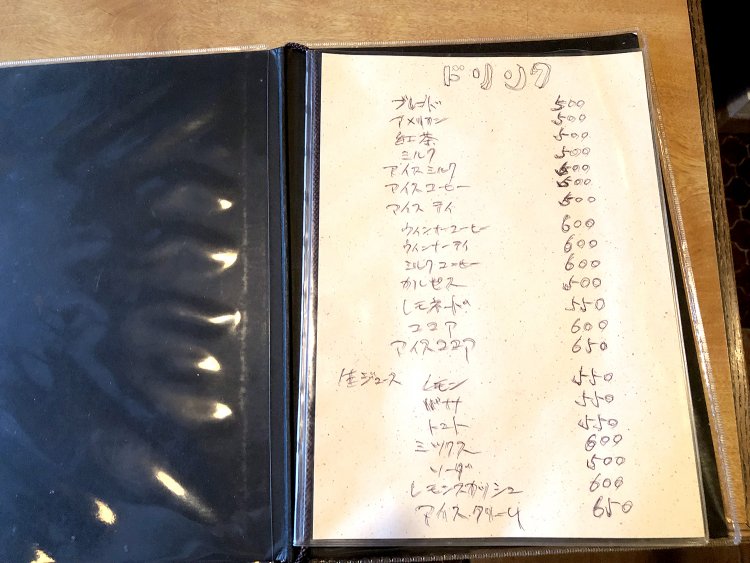 ドリンク
ブレンド 500
アメリカン 500
紅茶 500
ミルク 500
アイスミルク 500
アイスコーヒー 500
アイスティ 500
ウィンナーコーヒー 600
ウィンナーティ 600
ミルクコーヒー 600
カルピス 500
レモネード 550
ココア 600
アイスココア 650
生ジュース レモン 550
バナナ 550
トマト 550
ミックス 600
ソーダ 500
レモンスカッシュ 600
アイス・クリーム 650